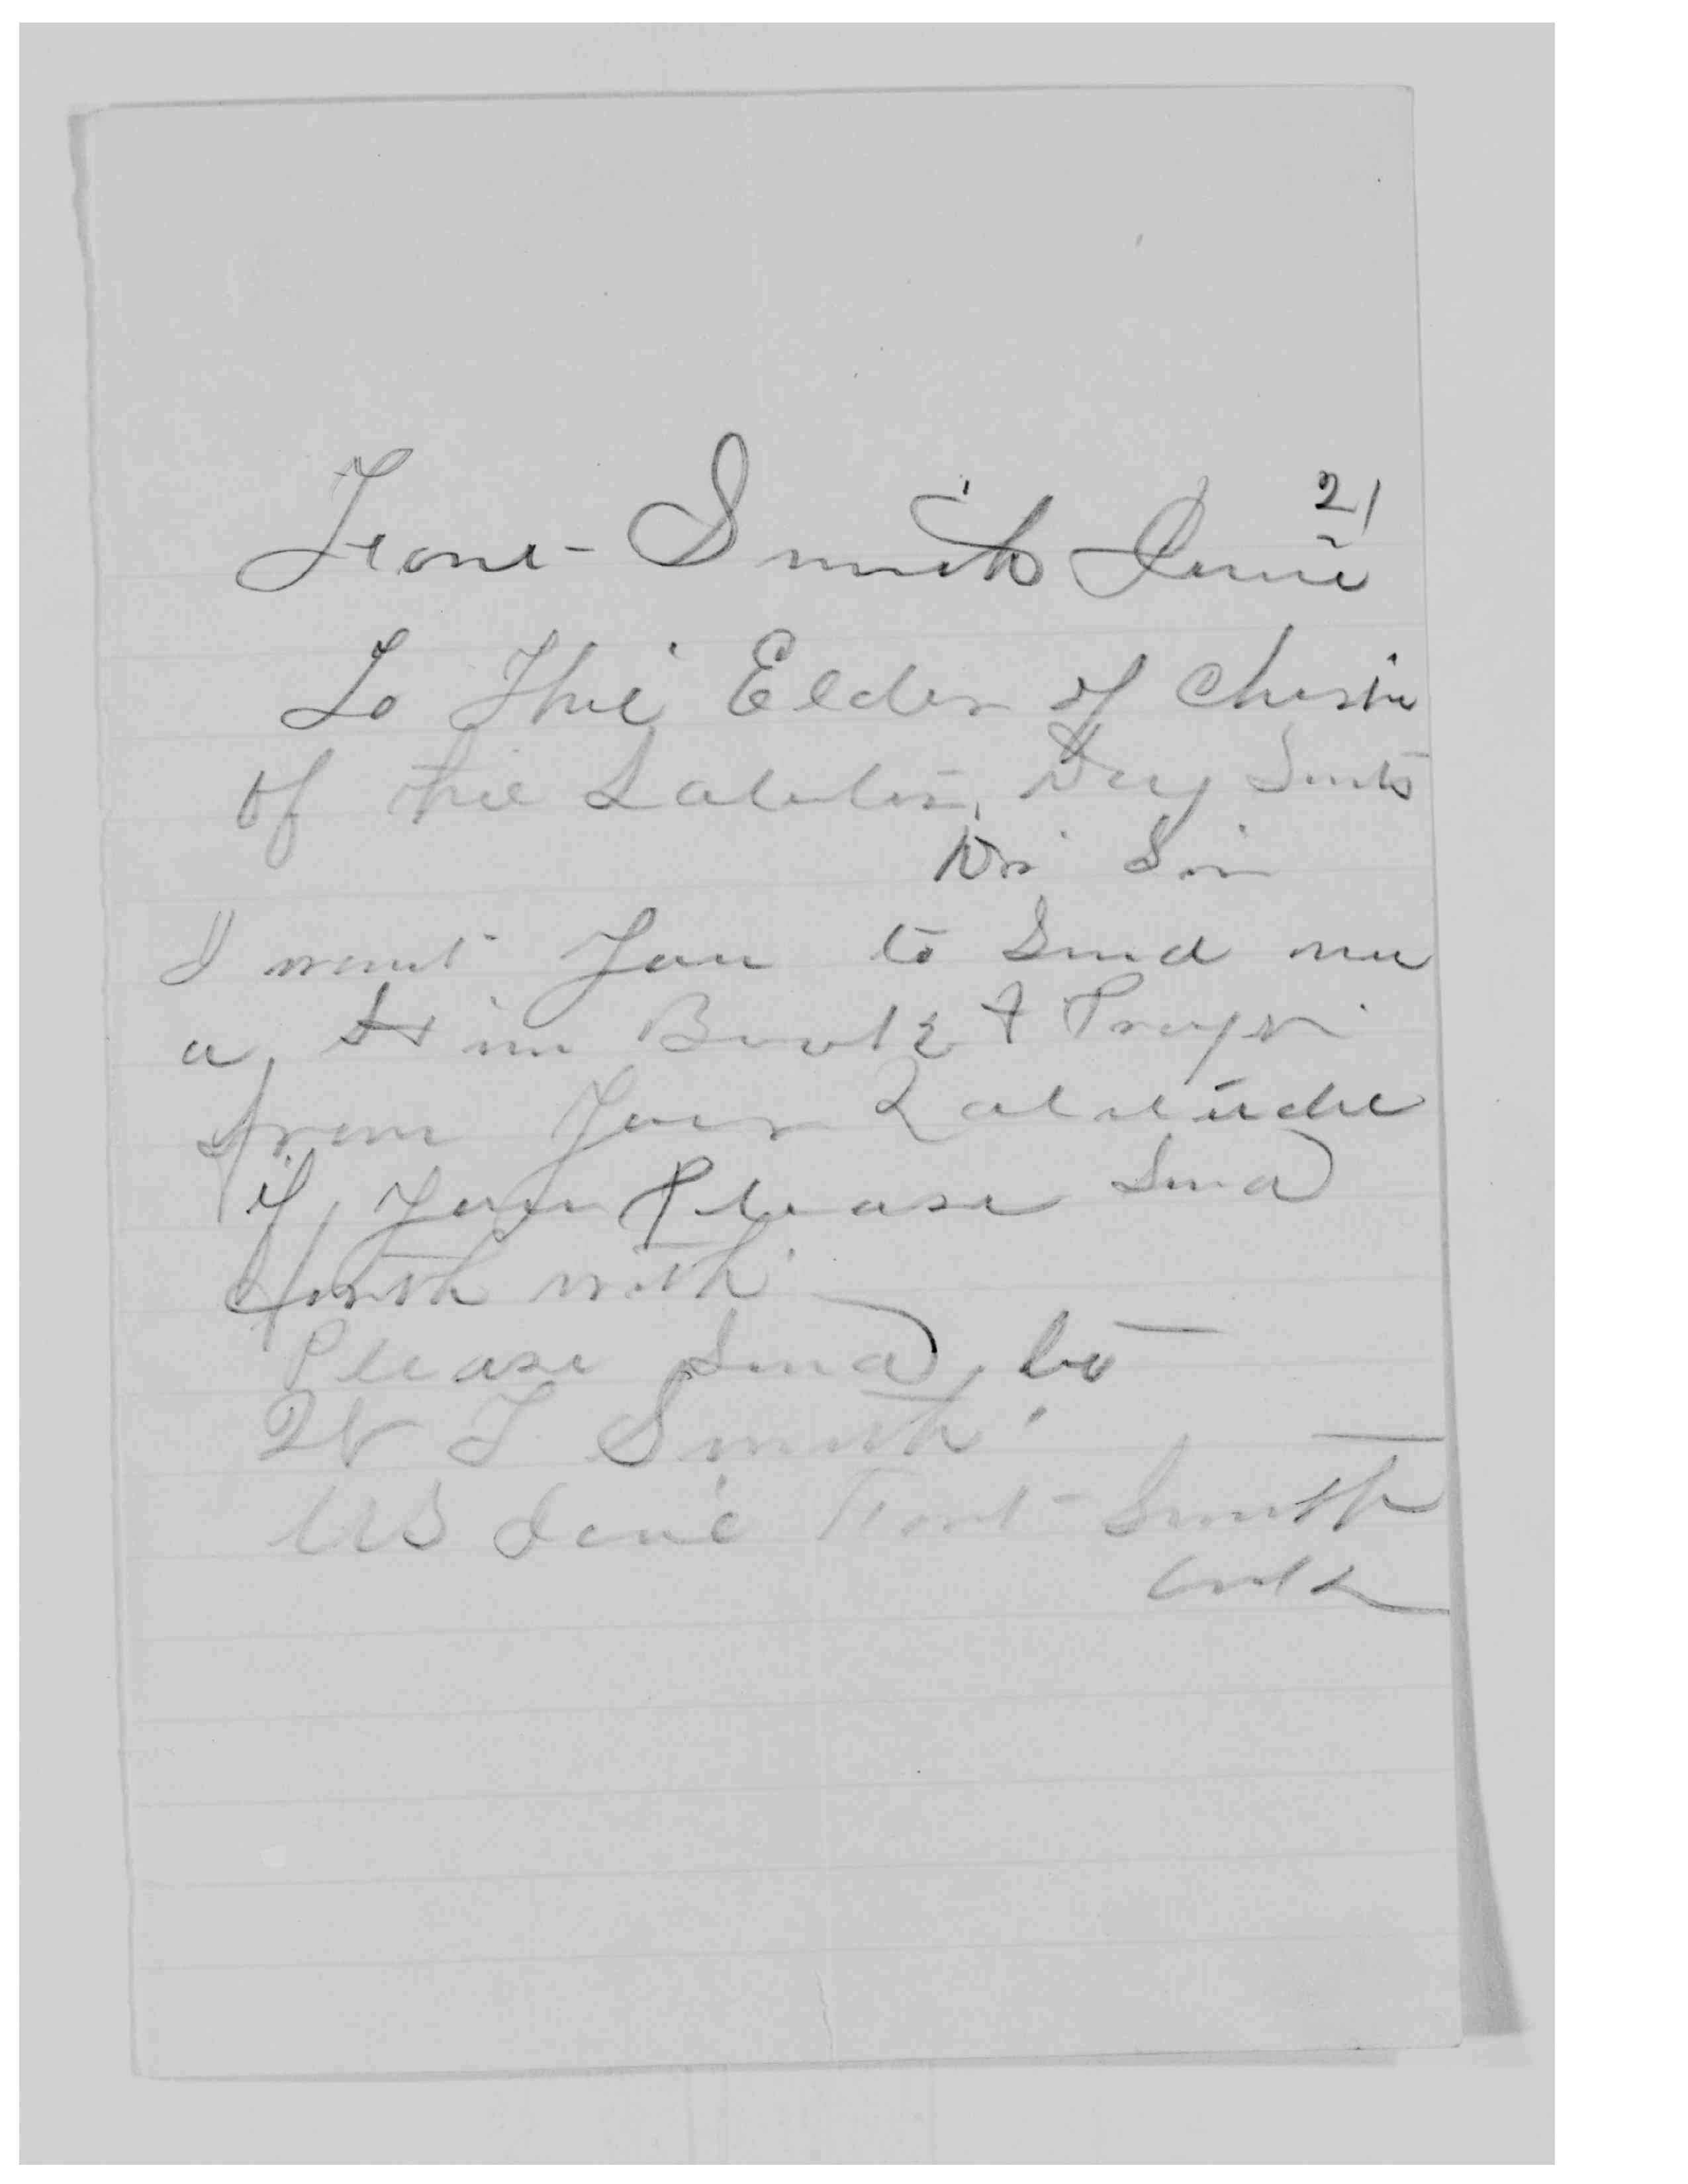 Fort Smith June 21
To The Elder of Christ
of the Latter Day Snts
Dr Sir
I want you to Send me
a Him Book & Prayer
from Your
if your Please Send
forth with
Please Send to
W T Smith
US Fort Smith
Ark